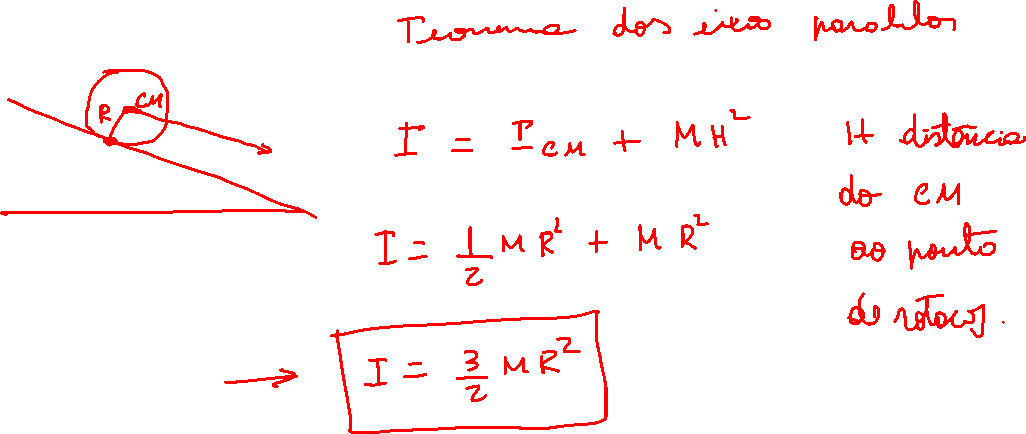 Teorema dos eixo paralelos
R CM
I = I_CM + MH²
H distância
do CM
ao ponto
de rotação.
I = 1/2 MR² + MR²
→ I = 3/2 MR²